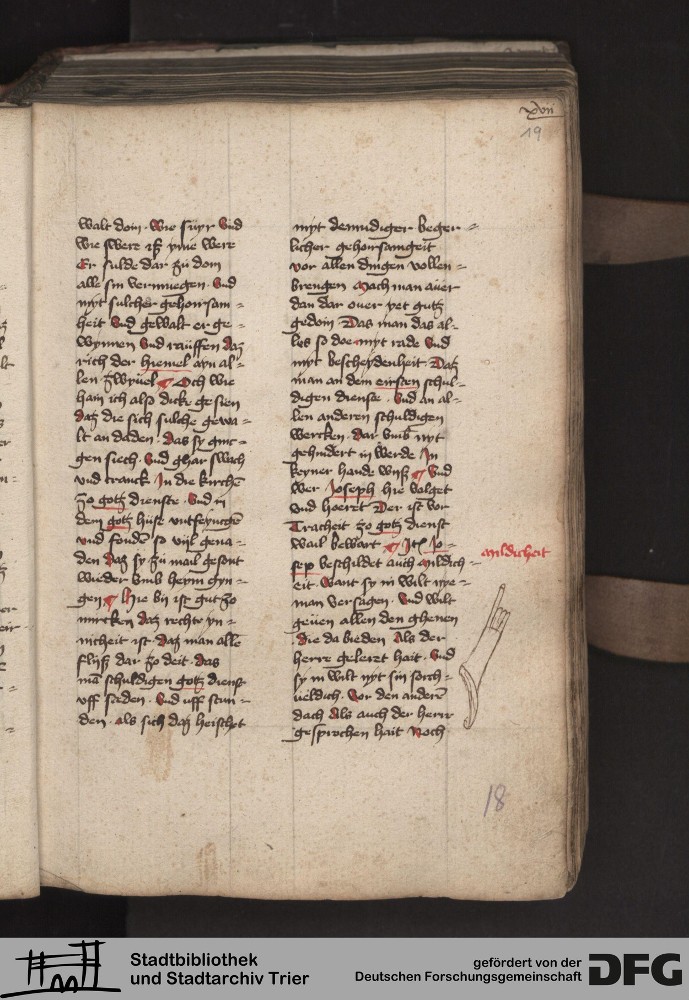 xviii
19
walt doin · Wie suyr Vnd
wie swere it yme were
Er sulde dar zu dom
alle sin vermuegen · Vnd
myt sulcher gehoirsam=
heit Vnd gewalt er ge=
wynnen Vnd rauffen daz
rich der hiemel ayn al=
len zwyuel Och wie
hain ich also dicke gesien
daz die sich sulche gewa=
lt an daden · Das sy gin=
gen siech · Vnd ghar swach
vnd cranck In die kirche
zo gotz dienste · Vnd in
dem gotz huse
vnd so vijl gena=
den daz sy zu mail gesont
wieder vmb heym gyn=
gen Hie bij ist gut zo
mircken daz rechte yn=
nicheit ist daz man alle
flijß dar zo deit · das
man schuldigen gotz dienst
vff · Vnd vff stun=
den · als sich daz heischet
myt demudiger beger=
licher gehorsamgeit
vor allen dingen vollen=
brengen Mach man auer
dan dar ouer yet gutz
gedoin · Das man das al=
les so doe myt rade Vnd
myt bescheydenheit Daz
man an dem eirsten schul=
digen dienste · Vnd an al=
len anderen schuldigen
wercken · Dar vmb nyt
gehindert in werde In
keyner hande wijß Vnd
wer Joseph hie volget
vnd hoeret Der ist vor
Tracheit zo gotz dienst
wail bewart Item Jo=
sep beschildet auch mildich=
eit · Want sy in wilt nye=
man versagen · Vnd wilt
geuen allen den ghenen
die da bieden Als der
herre geleret hait · Vnd
sy in wilt nyt sin sorch=
ueldich · Vor den anderen
dach Als auch der herre
gesprochen hait Noch
mildicheit
18
Stadtbibliothek
und Stadtarchiv Trier
gefördert von der
Deutschen Forschungsgemeinschaft
DFG